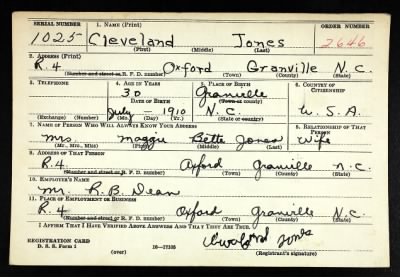 SERIAL NUMBER 1. NAME (Print) ORDER NUMBER
1025 Cleveland Jones 2646
(First) (Middle) (Last)
2. ADDRESS (Print)
R.4 Oxford Granville N.C.
(Number and street or R. F. D. number) (Town) (County) (State)
3. TELEPHONE 4. AGE IN YEARS 5. PLACE OF BIRTH 6. COUNTRY OF CITIZENSHIP
30 Granville
DATE OF BIRTH (Town or county)
July 1910 N.C. U.S.A.
(Exchange) (Number) (Mo.) (Day) (Yr.) (State or country)
7. NAME OF PERSON WHO WILL ALWAYS KNOW YOUR ADDRESS 8. RELATIONSHIP OF THAT PERSON
Mrs Maggie Bette Jones Wife
(Mr., Mrs., Miss) (First) (Middle) (Last)
9. ADDRESS OF THAT PERSON
R.4. Oxford Granville N.C.
(Number and street or R. F. D. number) (Town) (County) (State)
10. EMPLOYER'S NAME
Mr. R.B. Dean
11. PLACE OF EMPLOYMENT OR BUSINESS
R.4 Oxford Granville N.C.
(Number and street or R. F. D. number) (Town) (County) (State)
I AFFIRM THAT I HAVE VERIFIED ABOVE ANSWERS AND THAT THEY ARE TRUE.
REGISTRATION CARD
D. S. S. Form 1 (over) 16—17105 Jones
(Registrant's signature)